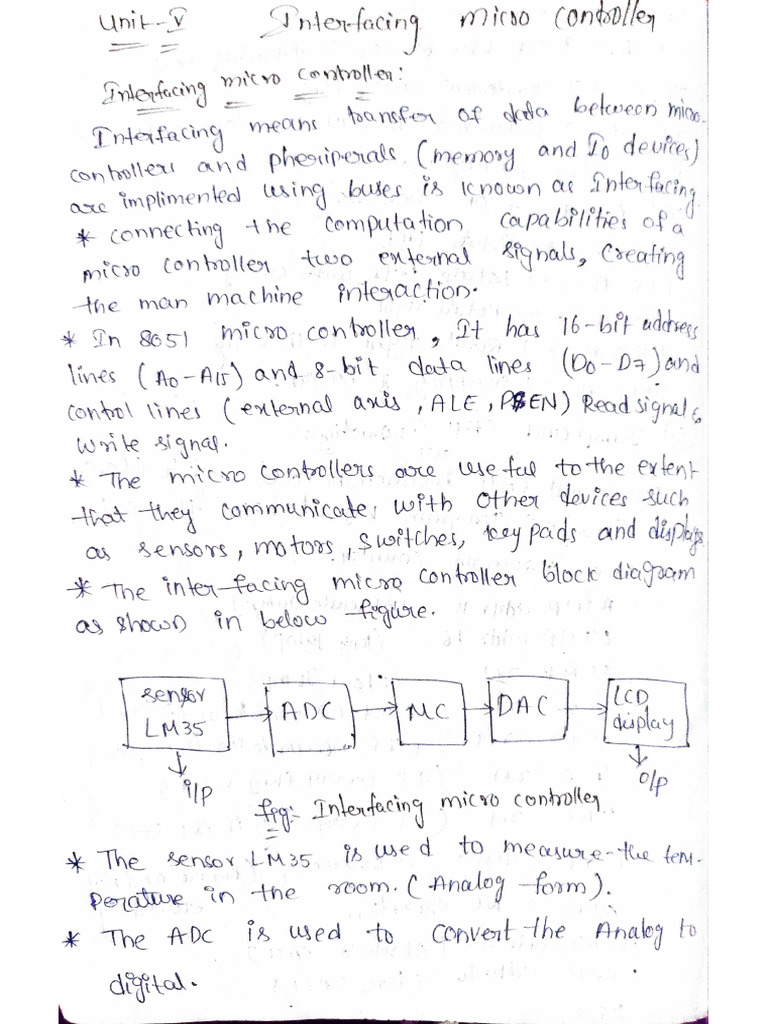 Unit-V Interfacing micro controller
Interfacing micro controller:
Interfacing means transfer of data between micro-
controllers and pheriperals (memory and Io devices)
are implimented using buses is known as Interfacing
* connecting the computation capabilities of a
micro controller two external signals, creating
the man machine interaction.
* In 8051 micro controller, It has 16-bit address
lines (A0-A15) and 8-bit data lines (D0-D7) and
control lines (external axis, ALE, PSEN) Read signals,
write signal.
* The micro controllers are useful to the extent
that they communicate, with other devices such
as sensors, motors, switches, key pads and displays
* The inter-facing micro controller block diagram
as shown in below figure.
sensor LM35 ADC MC DAC LCD display
i/p o/p
fig:- Interfacing micro controller
* The sensor LM35 is used to measure-the tem-
perature in the room. (Analog form).
* The ADC is used to convert the Analog to
digital.